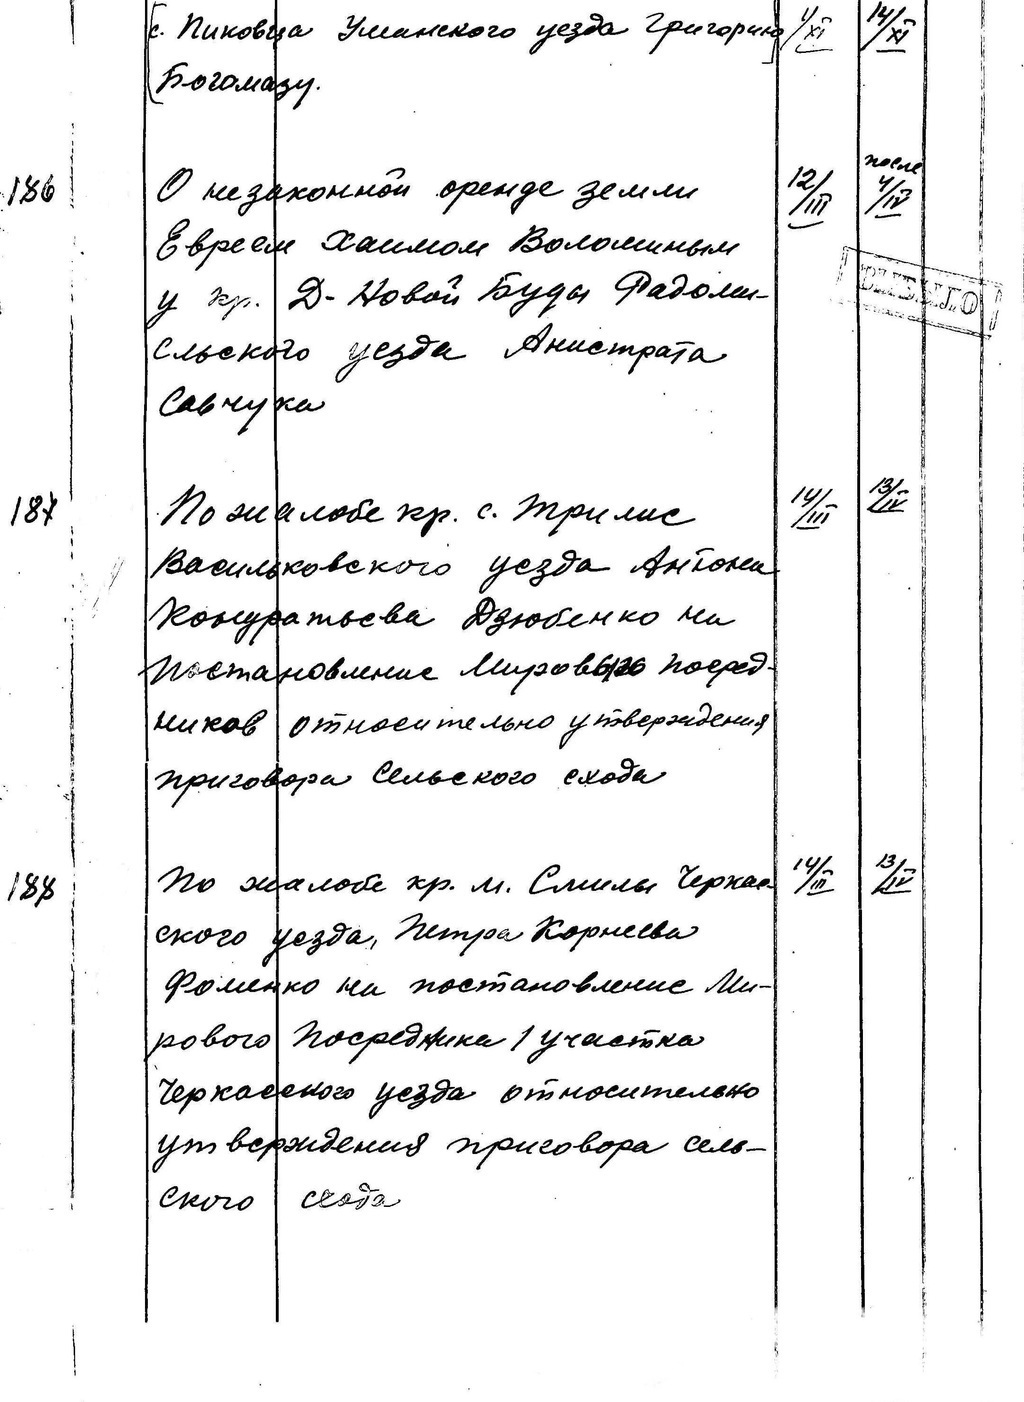 с. Пиковца Уманского уезда Григорию 4/XI 14/XI
Богомазу.
186 О незаконной оренде земли 12/III после 4/IV
Евреем Хаимом Воломиным
у кр. Д- Новой Буды Радомы-
сльского уезда Анистрата
Савчука
ВЫБЫЛО
187 По жалобе кр. с. Трилис 14/III 13/IV
Васильковского уезда Антона
Кондратьева Дзюбенко на
Постановление Мирового Посред-
ников относительно утверждения
приговора Сельского схода
188 По жалобе кр. м. Смилы Черкас- 14/III 13/IV
ского уезда, Петра Корнеева
Фоменко на постановление Ми-
рового Посредника 1 участка
Черкасского уезда относительно
утверждения приговора сель-
ского схода